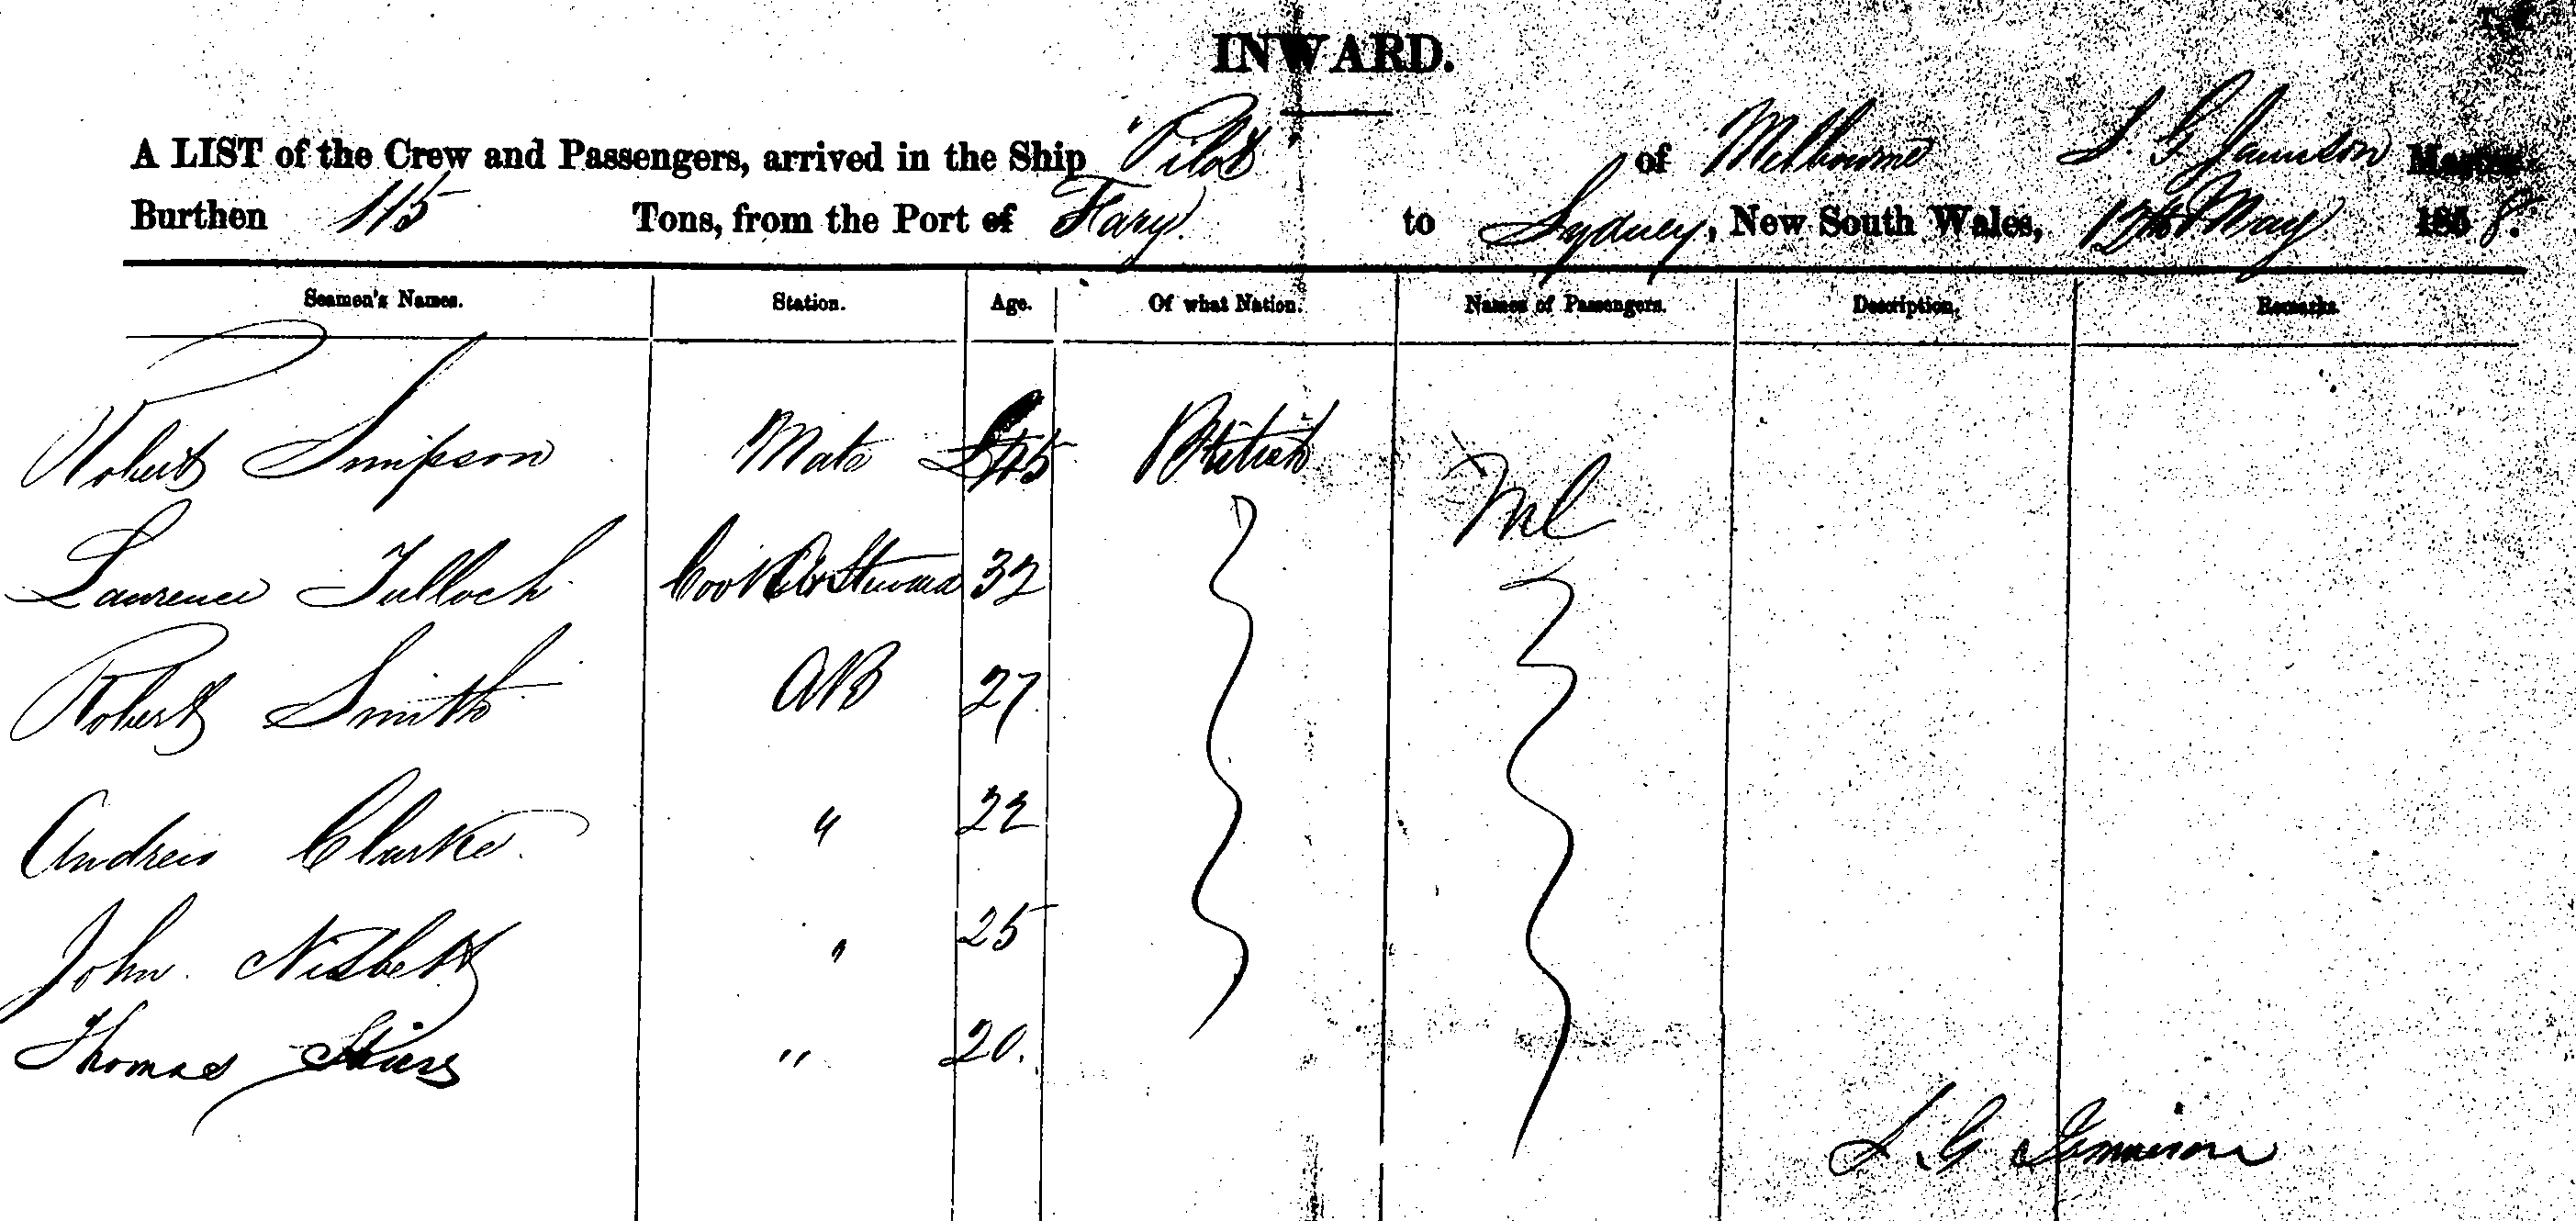 INWARD.
A LIST of the Crew and Passengers, arrived in the Ship "Pilot" of Melbourne S. G. Master
Burthen 115 Tons, from the Port of to Sydney, New South Wales, 12th May 1858.
Seamen's Names. Station. Age. Of what Nation. Names of Passengers. Description. Remarks.
Robert Simpson Mate 45 British
Nil
Laurence Tulloch Cook & Steward 32
Robert Smith AB 27
Andrew Clarke " 22
John Nisbett " 25
Thomas " 20.
S G